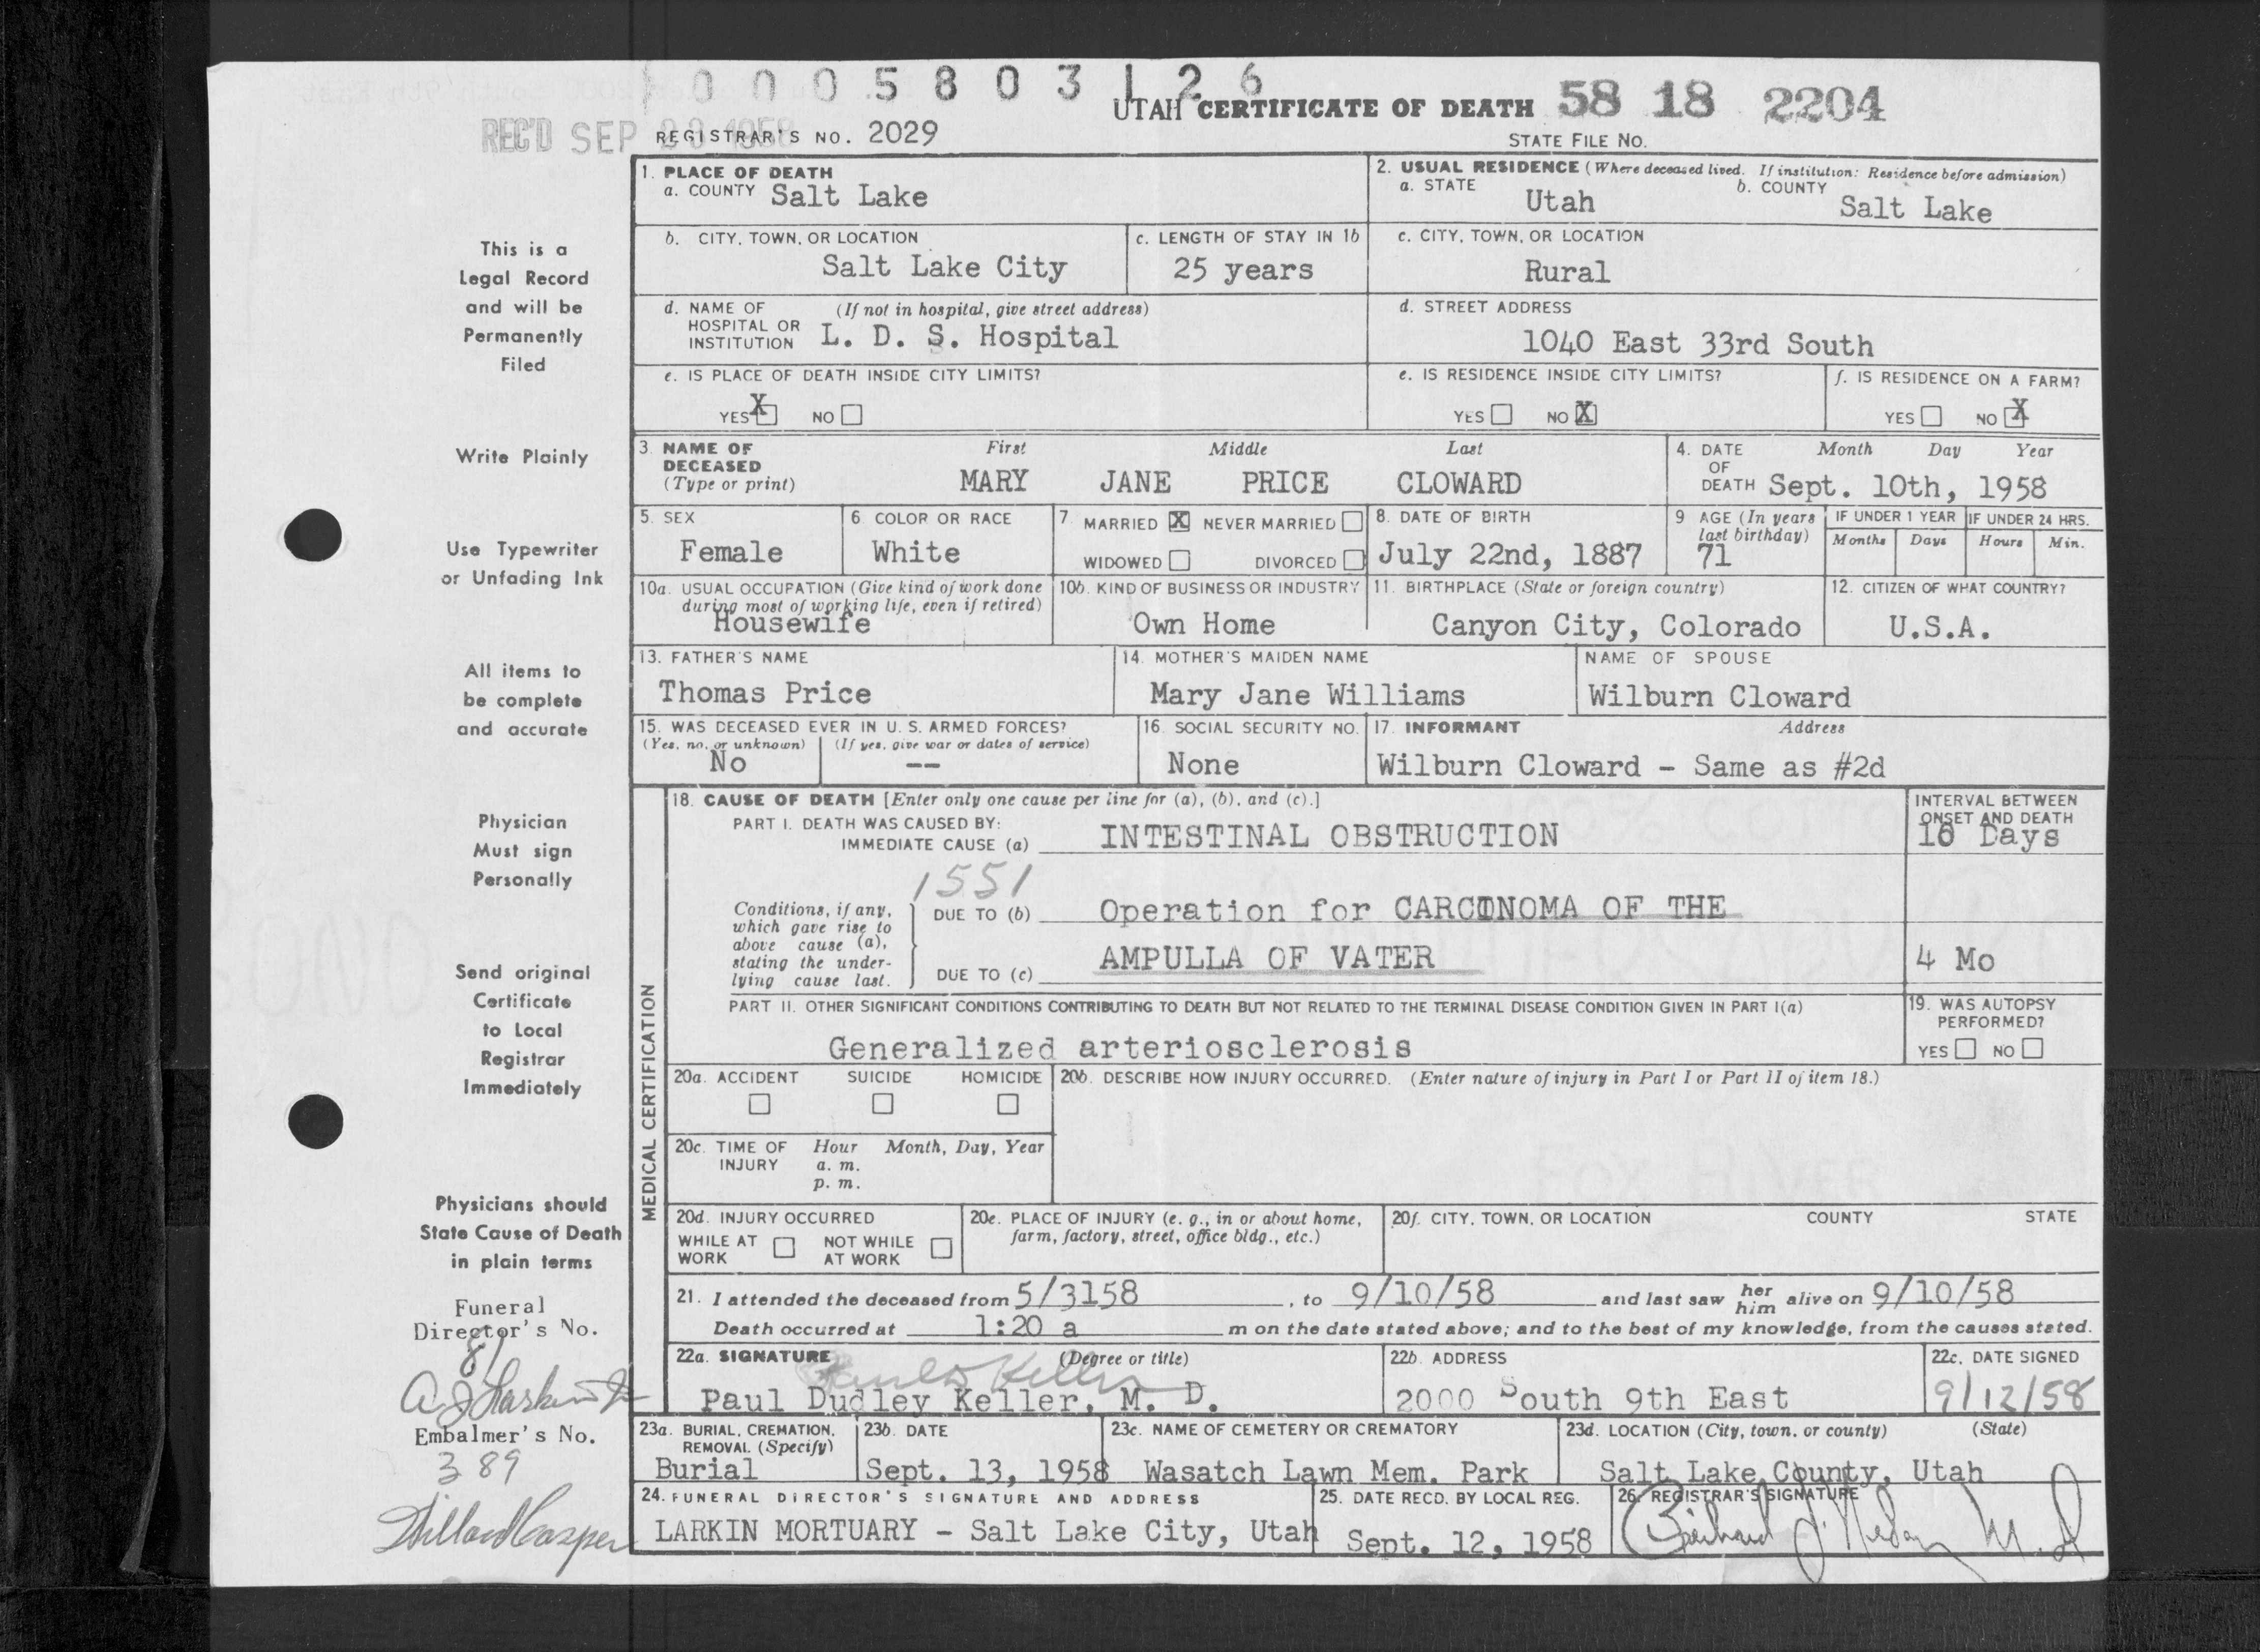 0005803126
UTAH CERTIFICATE OF DEATH 58 18 2204
REC'D SEP 1958 REGISTRAR'S NO. 2029
STATE FILE NO.
1. PLACE OF DEATH
a. COUNTY Salt Lake
2. USUAL RESIDENCE (Where deceased lived. If institution: Residence before admission)
a. STATE Utah b. COUNTY Salt Lake
b. CITY, TOWN, OR LOCATION Salt Lake City
c. LENGTH OF STAY IN 1b 25 years
c. CITY, TOWN, OR LOCATION Rural
d. NAME OF HOSPITAL OR INSTITUTION (If not in hospital, give street address) L. D. S. Hospital
d. STREET ADDRESS 1040 East 33rd South
e. IS PLACE OF DEATH INSIDE CITY LIMITS?
YES X NO
e. IS RESIDENCE INSIDE CITY LIMITS?
YES NO X
f. IS RESIDENCE ON A FARM?
YES NO X
3. NAME OF DECEASED (Type or print) First Middle Last
MARY JANE PRICE CLOWARD
4. DATE OF DEATH Month Day Year
Sept. 10th, 1958
5. SEX Female
6. COLOR OR RACE White
7. MARRIED X NEVER MARRIED
WIDOWED DIVORCED
8. DATE OF BIRTH July 22nd, 1887
9. AGE (In years last birthday) 71
IF UNDER 1 YEAR Months Days
IF UNDER 24 HRS. Hours Min.
10a. USUAL OCCUPATION (Give kind of work done during most of working life, even if retired) Housewife
10b. KIND OF BUSINESS OR INDUSTRY Own Home
11. BIRTHPLACE (State or foreign country) Canyon City, Colorado
12. CITIZEN OF WHAT COUNTRY? U.S.A.
13. FATHER'S NAME Thomas Price
14. MOTHER'S MAIDEN NAME Mary Jane Williams
NAME OF SPOUSE Wilburn Cloward
15. WAS DECEASED EVER IN U. S. ARMED FORCES?
(Yes, no, or unknown) (If yes, give war or dates of service)
No --
16. SOCIAL SECURITY NO. None
17. INFORMANT Address
Wilburn Cloward - Same as #2d
MEDICAL CERTIFICATION
18. CAUSE OF DEATH [Enter only one cause per line for (a), (b), and (c).]
INTERVAL BETWEEN ONSET AND DEATH
PART I. DEATH WAS CAUSED BY:
IMMEDIATE CAUSE (a) INTESTINAL OBSTRUCTION 16 Days
1551
Conditions, if any, which gave rise to above cause (a), stating the underlying cause last.
DUE TO (b) Operation for CARCINOMA OF THE
DUE TO (c) AMPULLA OF VATER 4 Mo
PART II. OTHER SIGNIFICANT CONDITIONS CONTRIBUTING TO DEATH BUT NOT RELATED TO THE TERMINAL DISEASE CONDITION GIVEN IN PART I(a)
Generalized arteriosclerosis
19. WAS AUTOPSY PERFORMED?
YES NO
20a. ACCIDENT SUICIDE HOMICIDE
20b. DESCRIBE HOW INJURY OCCURRED. (Enter nature of injury in Part I or Part II of item 18.)
20c. TIME OF INJURY Hour Month, Day, Year
a. m.
p. m.
20d. INJURY OCCURRED
WHILE AT WORK NOT WHILE AT WORK
20e. PLACE OF INJURY (e. g., in or about home, farm, factory, street, office bldg., etc.)
20f. CITY, TOWN, OR LOCATION COUNTY STATE
21. I attended the deceased from 5/3158, to 9/10/58 and last saw her him alive on 9/10/58
Death occurred at 1:20 a m on the date stated above; and to the best of my knowledge, from the causes stated.
22a. SIGNATURE (Degree or title)
Paul D Keller
Paul Dudley Keller, M. D.
22b. ADDRESS 2000 South 9th East
22c. DATE SIGNED 9/12/58
23a. BURIAL, CREMATION, REMOVAL (Specify) Burial
23b. DATE Sept. 13, 1958
23c. NAME OF CEMETERY OR CREMATORY Wasatch Lawn Mem. Park
23d. LOCATION (City, town, or county) (State)
Salt Lake County, Utah
24. FUNERAL DIRECTOR'S SIGNATURE AND ADDRESS
LARKIN MORTUARY - Salt Lake City, Utah
25. DATE RECD. BY LOCAL REG. Sept. 12, 1958
26. REGISTRAR'S SIGNATURE
M.D
This is a
Legal Record
and will be
Permanently
Filed
Write Plainly
Use Typewriter
or Unfading Ink
All items to
be complete
and accurate
Physician
Must sign
Personally
Send original
Certificate
to Local
Registrar
Immediately
Physicians should
State Cause of Death
in plain terms
Funeral
Director's No.
81
Embalmer's No.
389